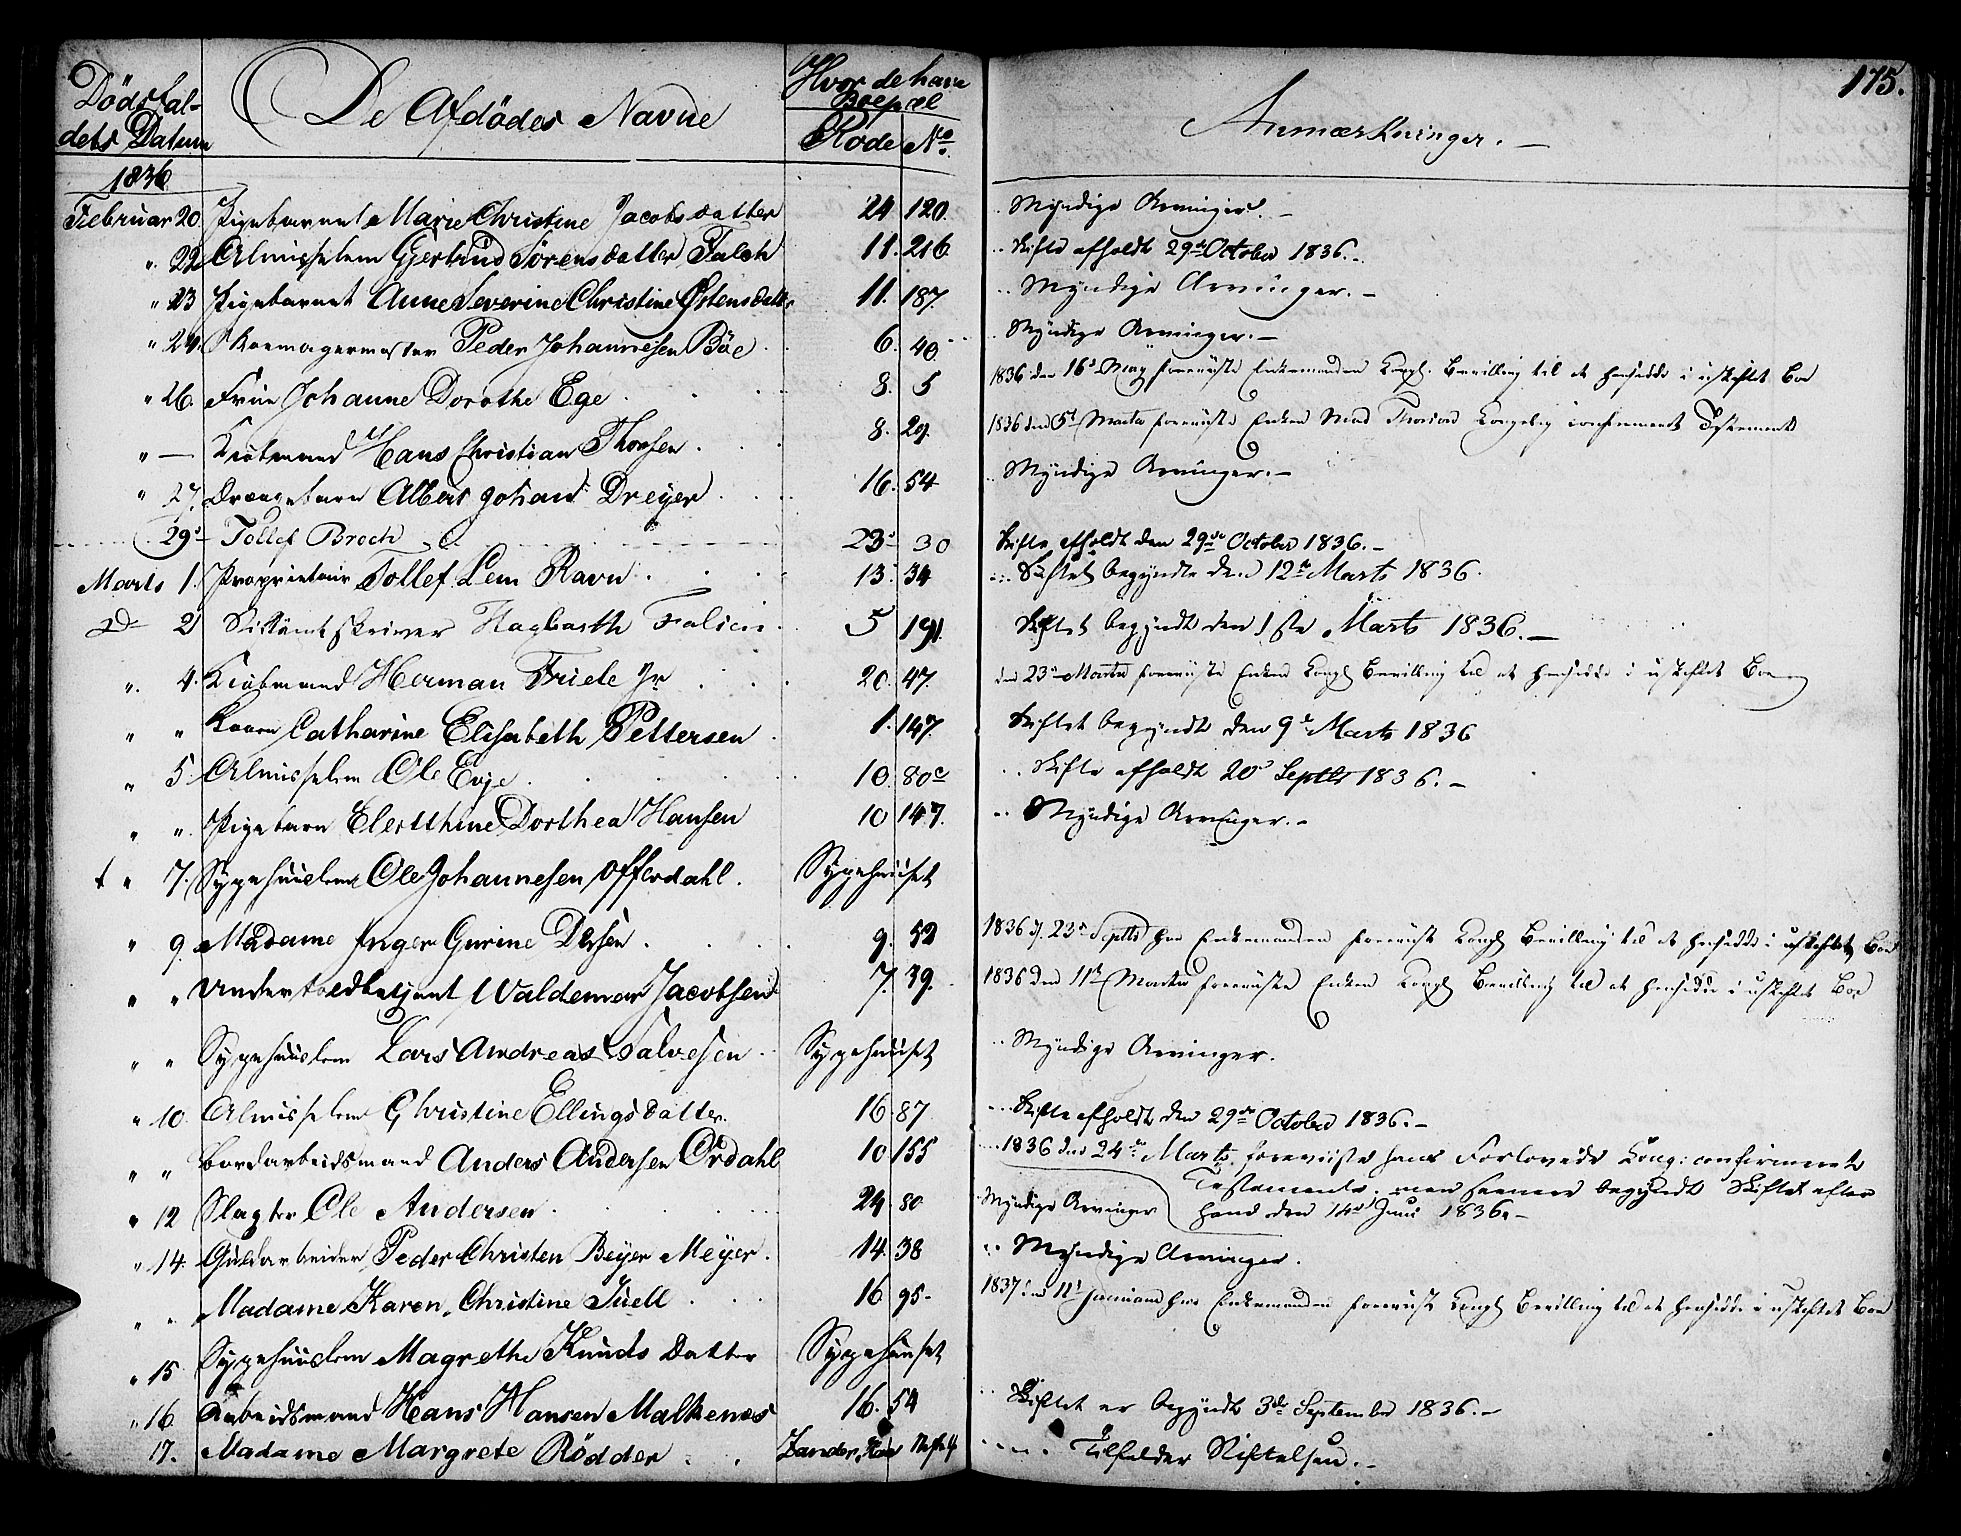 175.
Dödsfal- De Afdödes Navne Hvor de have Anmærkninger.
dets Datum Boepæl
Rode No
1836
Februar 20. Pigebarnet Marie Christine Jacobsdatter 24 120. Myndige Arvinger. –
" 22 Almisselem Gjertrud Sörensdatter Falch 11. 216 Skifte afholdt 29de October 1836. –
" 23 Pigebarnet Anne Severine Christine Østensdatter 11. 187. Myndige Arvinger. –
" 24. Skoemagermester Peder Johannesen Böe 6. 40. Myndige Arvinger. –
" 26. Frue Johanne Dorothe Ege 8. 5 1836 den 16d May foreviiste Enkemanden Kongl. Bevilling til at hensidde i uskiftet Boe
" — Kiöbmand Hans Christian Thorsen 8. 29. 1836 den 5t Marts foreviiste Enken Mad Kongelig confirmeret Testament
" 27. Drengebarn Albert Johan Dreyer 16. 54 Myndige Arvinger. –
29d Tollef Broch 23 30 Skifte afholdt den 29de October 1836. –
Marts 1. Proprietair Tollef Lem Ravn 13. 34 Skiftet begyndte den 12te Marts 1836.
D 2 Stiftamtskriver Hagbarth 5 191 Skiftet begyndt den 1ste Marts 1836. –
" 4. Kiöbmand Herman Friele Jr 20. 47. den 23de Marts foreviiste Enken Kongl Bevilling til at hensidde i uskiftet Boe
" " Konen Catharine Elisabeth Pettersen 1. 147. Skiftet begyndt den 9de Marts 1836
" 5. Almisselem Ole Evje 10. 80c Skifte afholdt 20d Septbr 1836. –
" " Pigebarn Dorthea Hansen 10 147. Myndige Arvinger. –
† " 7. Sygehuuslem Ole Johannesen Offerdahl. Sygehuuset
" 9. Madame Inger Gurine 9. 52 1836 d. 23de Septbr har Enkemanden foreviist Kongl Bevilling til at hensidde i uskiftet Boe
" " Undertoldbetjent Waldemar Jacobsen 7. 39. 1836 den 11te Marts foreviiste Enken Kongl Bevilling til at hensidde i uskiftet Boe
" " Sygehuuslem Lars Andreas Salvesen Sygehuuset Myndige Arvinger.
" 10. Almisselem Christine Ellingsdatter 16. 87 Skifte afholdt den 29de October 1836. –
" " Bordarbeidsmand Anders Andersen Ördahl 10 155 1836 den 24de Marts foreviiste hans Forlovede Kong: confirmeret
Testamente, men senere begyndt Skiftet efter
" 12 Slagter Ole Andersen 24. 80 Myndige Arvinger ham den 14de Juni 1836. –
" 14. Guldarbeider Peder Christen Beyer Meyer. 14. 38 Myndige Arvinger.
" " Madame Karen Christine Juell 16 95- 1837 den 11t Januar har Enkemanden foreviist Kongl Bevilling til at hensidde i uskiftet Boe
" 15 Sygehuuslem Magrethe Knuds Datter Sygehuuset
" 16 Arbeidsmand Hans Hansen Malkenes 16. 54 Skiftet er begyndt 3de September 1836. –
17. Madame Margrete Rödder Tilfalder Stiftelsen. –